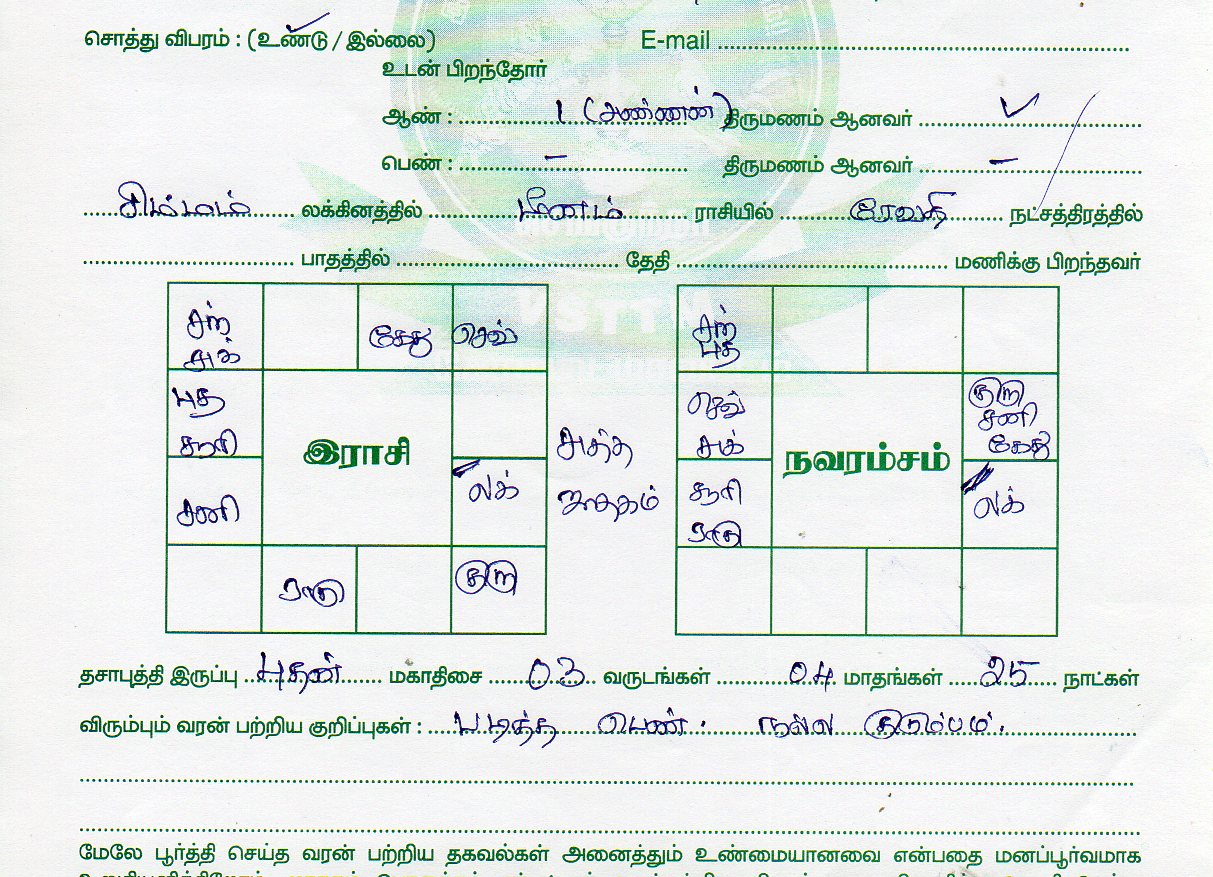 சொத்து விபரம் : (உண்டு / இல்லை) E-mail
உடன் பிறந்தோர்
ஆண் : 1 (அண்ணன்) திருமணம் ஆனவர் ✓
பெண் : – திருமணம் ஆனவர் –
சிம்மம் லக்கினத்தில் மீனம் ராசியில் ரேவதி நட்சத்திரத்தில்
பாதத்தில் தேதி மணிக்கு பிறந்தவர்
சந் கேது செவ் சந்
சுக் புத
புத செவ் குரு
சூரி சுக் சனி
இராசி சுத்த நவரம்சம் கேது
சனி லக் ஜாதகம் சூரி லக்
ராகு
ராகு குரு
VSTTM
தசாபுத்தி இருப்பு புதன் மகாதிசை 03 வருடங்கள் 04 மாதங்கள் 25 நாட்கள்
விரும்பும் வரன் பற்றிய குறிப்புகள் : படித்த பெண். நல்ல குடும்பம்.
மேலே பூர்த்தி செய்த வரன் பற்றிய தகவல்கள் அனைத்தும் உண்மையானவை என்பதை மனப்பூர்வமாக